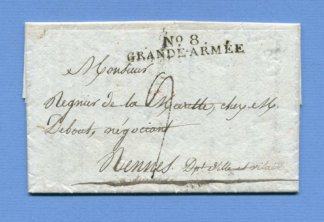 No 8.
GRANDE-ARMÉE
Monsieur
Regnier de la Marette, chez M.
Debout, négociant
Rennes. Dpt d'Ille et Vilaine